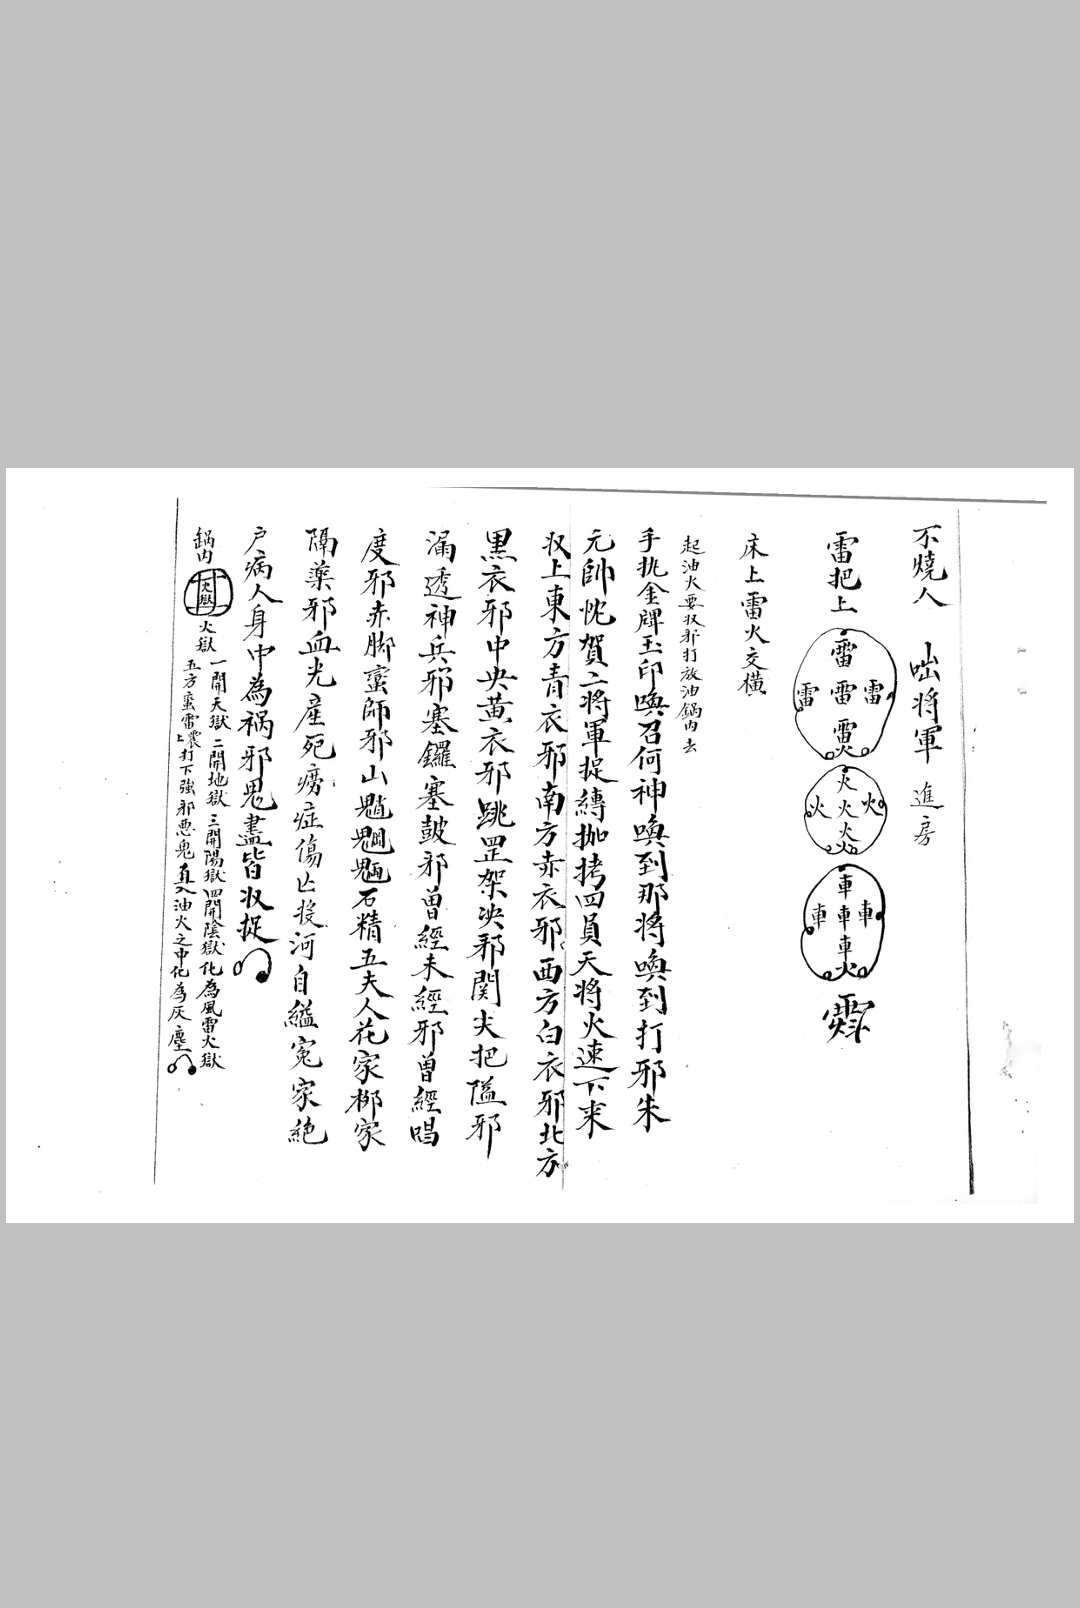 不燒人 咄將軍 進房
雷把上 雷 雷 雷 雷 雷 火 火 火 火 火 火 車 車 車 車 車 火
床上雷火交橫
起油火要收邪打放油鍋內去
手執金牌玉印喚召何神喚到那將喚到打邪朱
元帥忱賀二將軍捉縛拁拷四員天將火速下来
収上東方青衣邪南方赤衣邪西方白衣邪北方
黑衣邪中央黃衣邪跳罡架泱邪関夫把隘邪
漏透神兵邪塞鑼塞鼓邪曾經未經邪曾經唱
度邪赤脚蛮師邪山魈魍魎石精五夫人花家柳家
隔藥邪血光産死癆症傷亡投河自縊冤家絶
户病人身中為祸邪鬼盡皆収捉
鍋內 火獄 火獄 一開天獄二開地獄三開陽獄四開陰獄化為風雷火獄
五方蛮雷打下強邪悪鬼直入油火之中化為灰塵